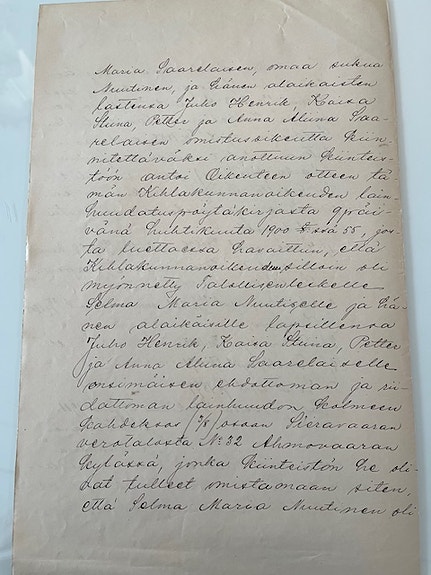 Maria Saarelaisen, omaa sukua
Nuutinen, ja hänen alaikäisten
lastensa Juho Henrik, Kaisa
Stiina, Petter ja Anna Aliina Saa-
relaisen omistusoikeutta kiin-
nitettäväksi anottuun kiinteis-
töön antoi Oikeuteen otteen tä-
män Kihlakunnanoikeuden lain-
huudatuspöytäkirjasta
päivänä huhtikuuta 1900 § 55, jos-
ta luettaessa havaittiin, että
Kihlakunnanoikeudessa silloin oli
myönnetty Talollisenleskelle
Selma Maria Nuutiselle ja hä-
nen alaikäisille lapsillensa
Juho Henrik, Kaisa Stiina, Petter
ja Anna Aliina Saarelaiselle
ensimäisen ehdottoman ja rii-
dattoman lainhuudon kolmeen
kahdeksas (3/8) osaan Sieravaaran
verotalosta No 32 Ahmovaaran
kylässä, jonka kiinteistön he oli-
vat tulleet omistamaan siten,
että Selma Maria Nuutinen oli